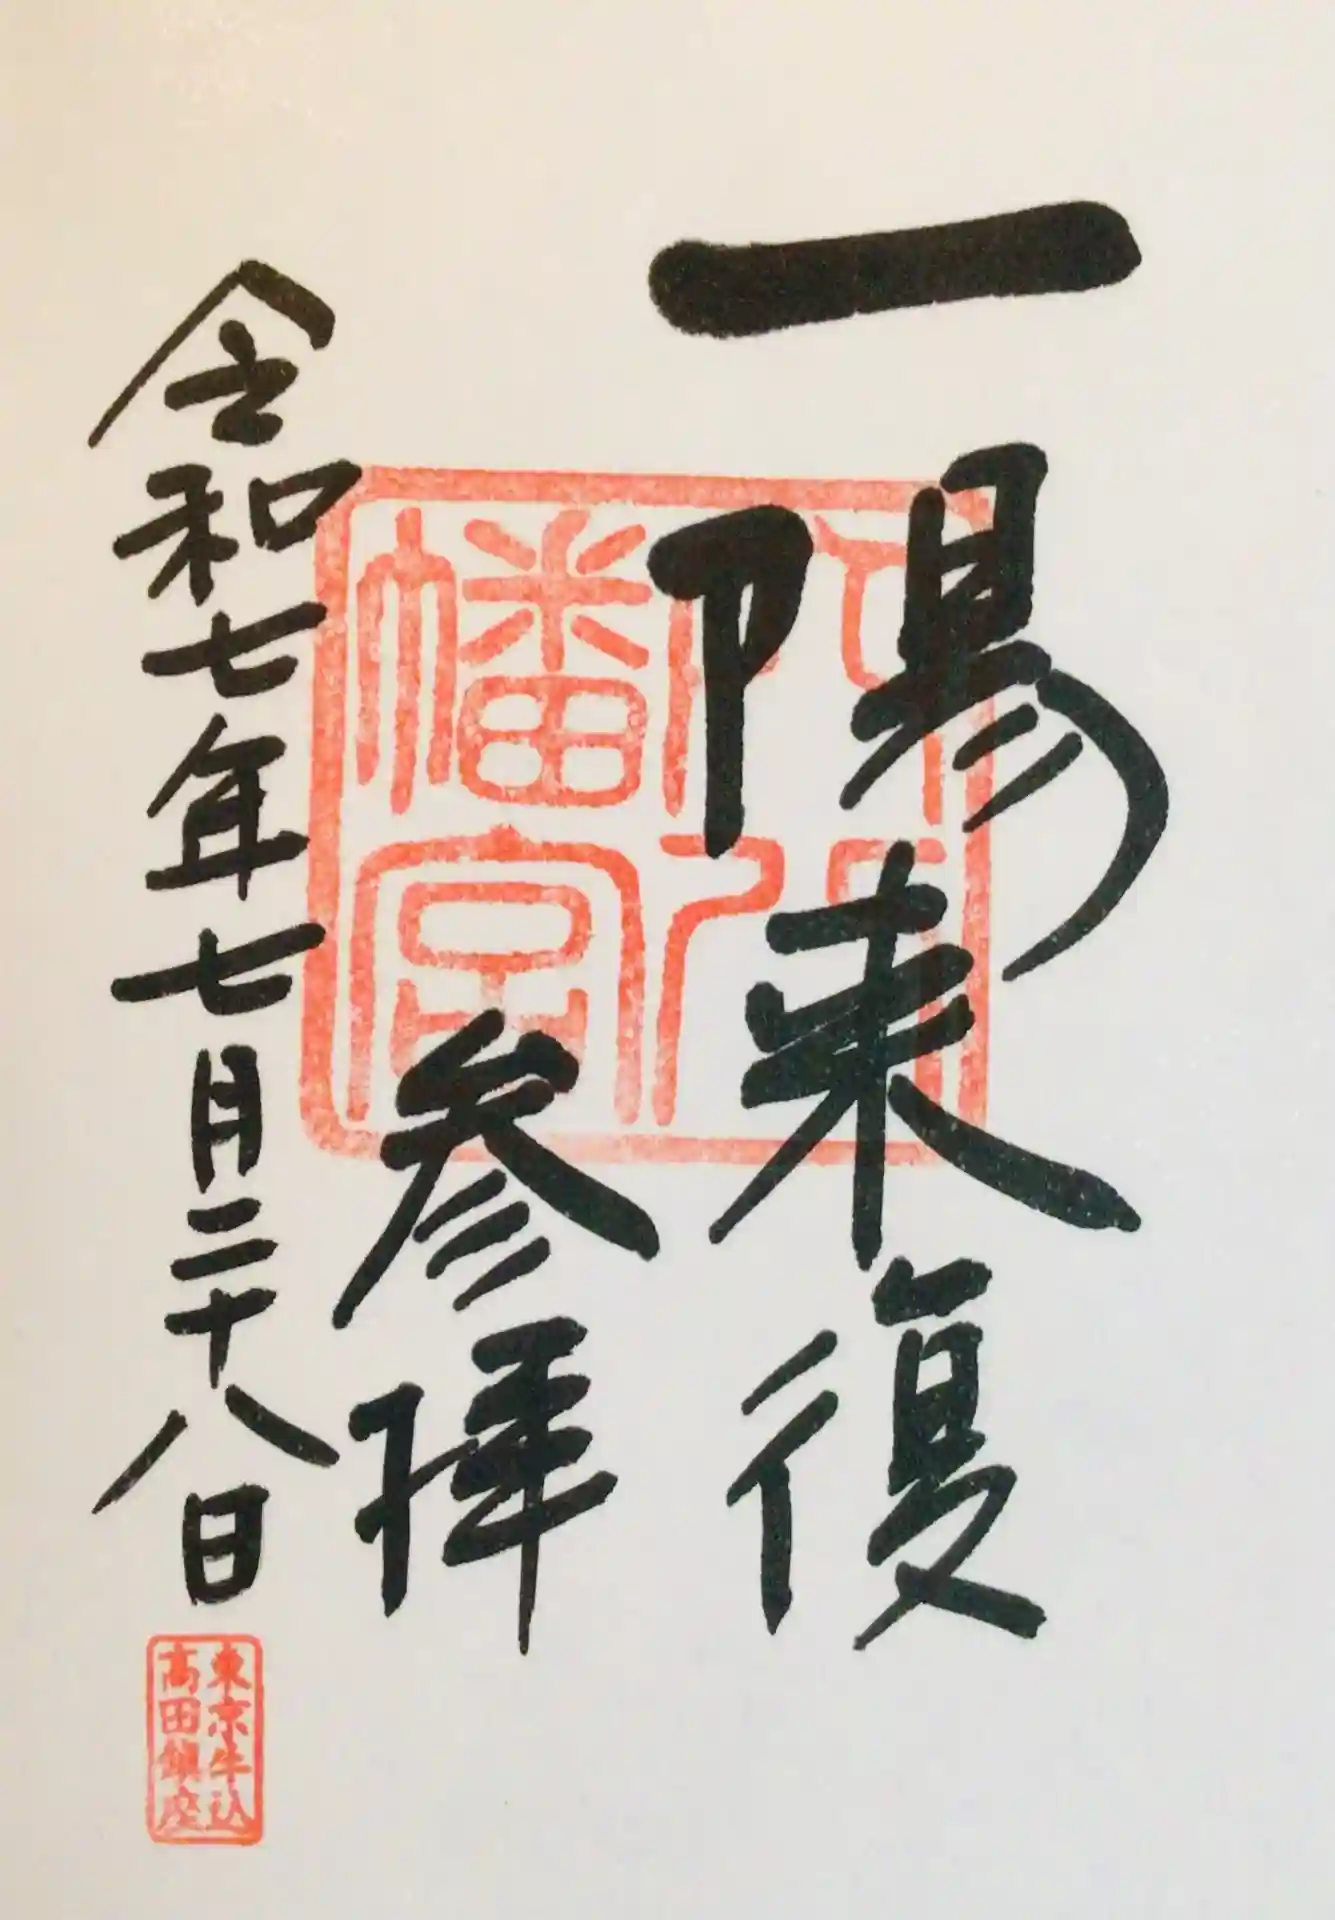 一陽来復
参拝
令和七年七月二十八日
穴八
幡宮
東京牛込
高田鎮座